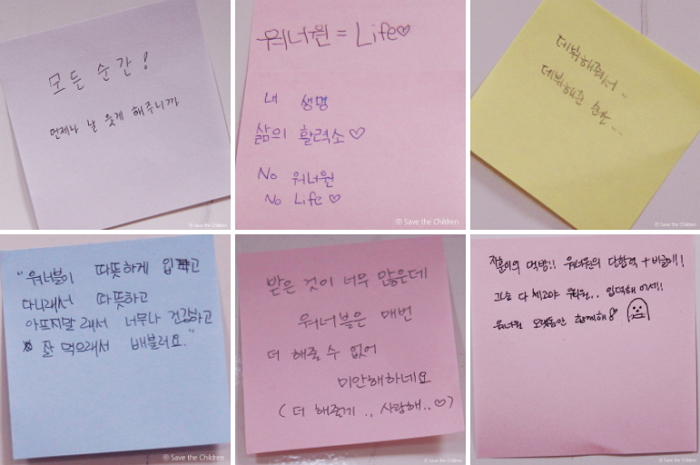 모든 순간!
언제나 날 웃게 해주니까
© Save the Children
워너원 = Life♡
내 생명
삶의 활력소♡
No 워너원
No Life♡
© Save the Children
데뷔해줘서..
데뷔해준 순간...
© Save the Children
"워너블이 따뜻하게 입고
다니래서 따뜻하고
아프지말래서 너무나 건강하고
잘 먹으래서 배불러요."
© Save the Children
받은 것이 너무 많은데
워너블은 매번
더 해줄 수 없어
미안해하네요
(더 해줄게.., 사랑해..♡)
© Save the Children
지훈이의 먹방!! 워너원의 단합력 +
다 제고야 입덕해
워너원 오랫동안 함께해
© Save the Children